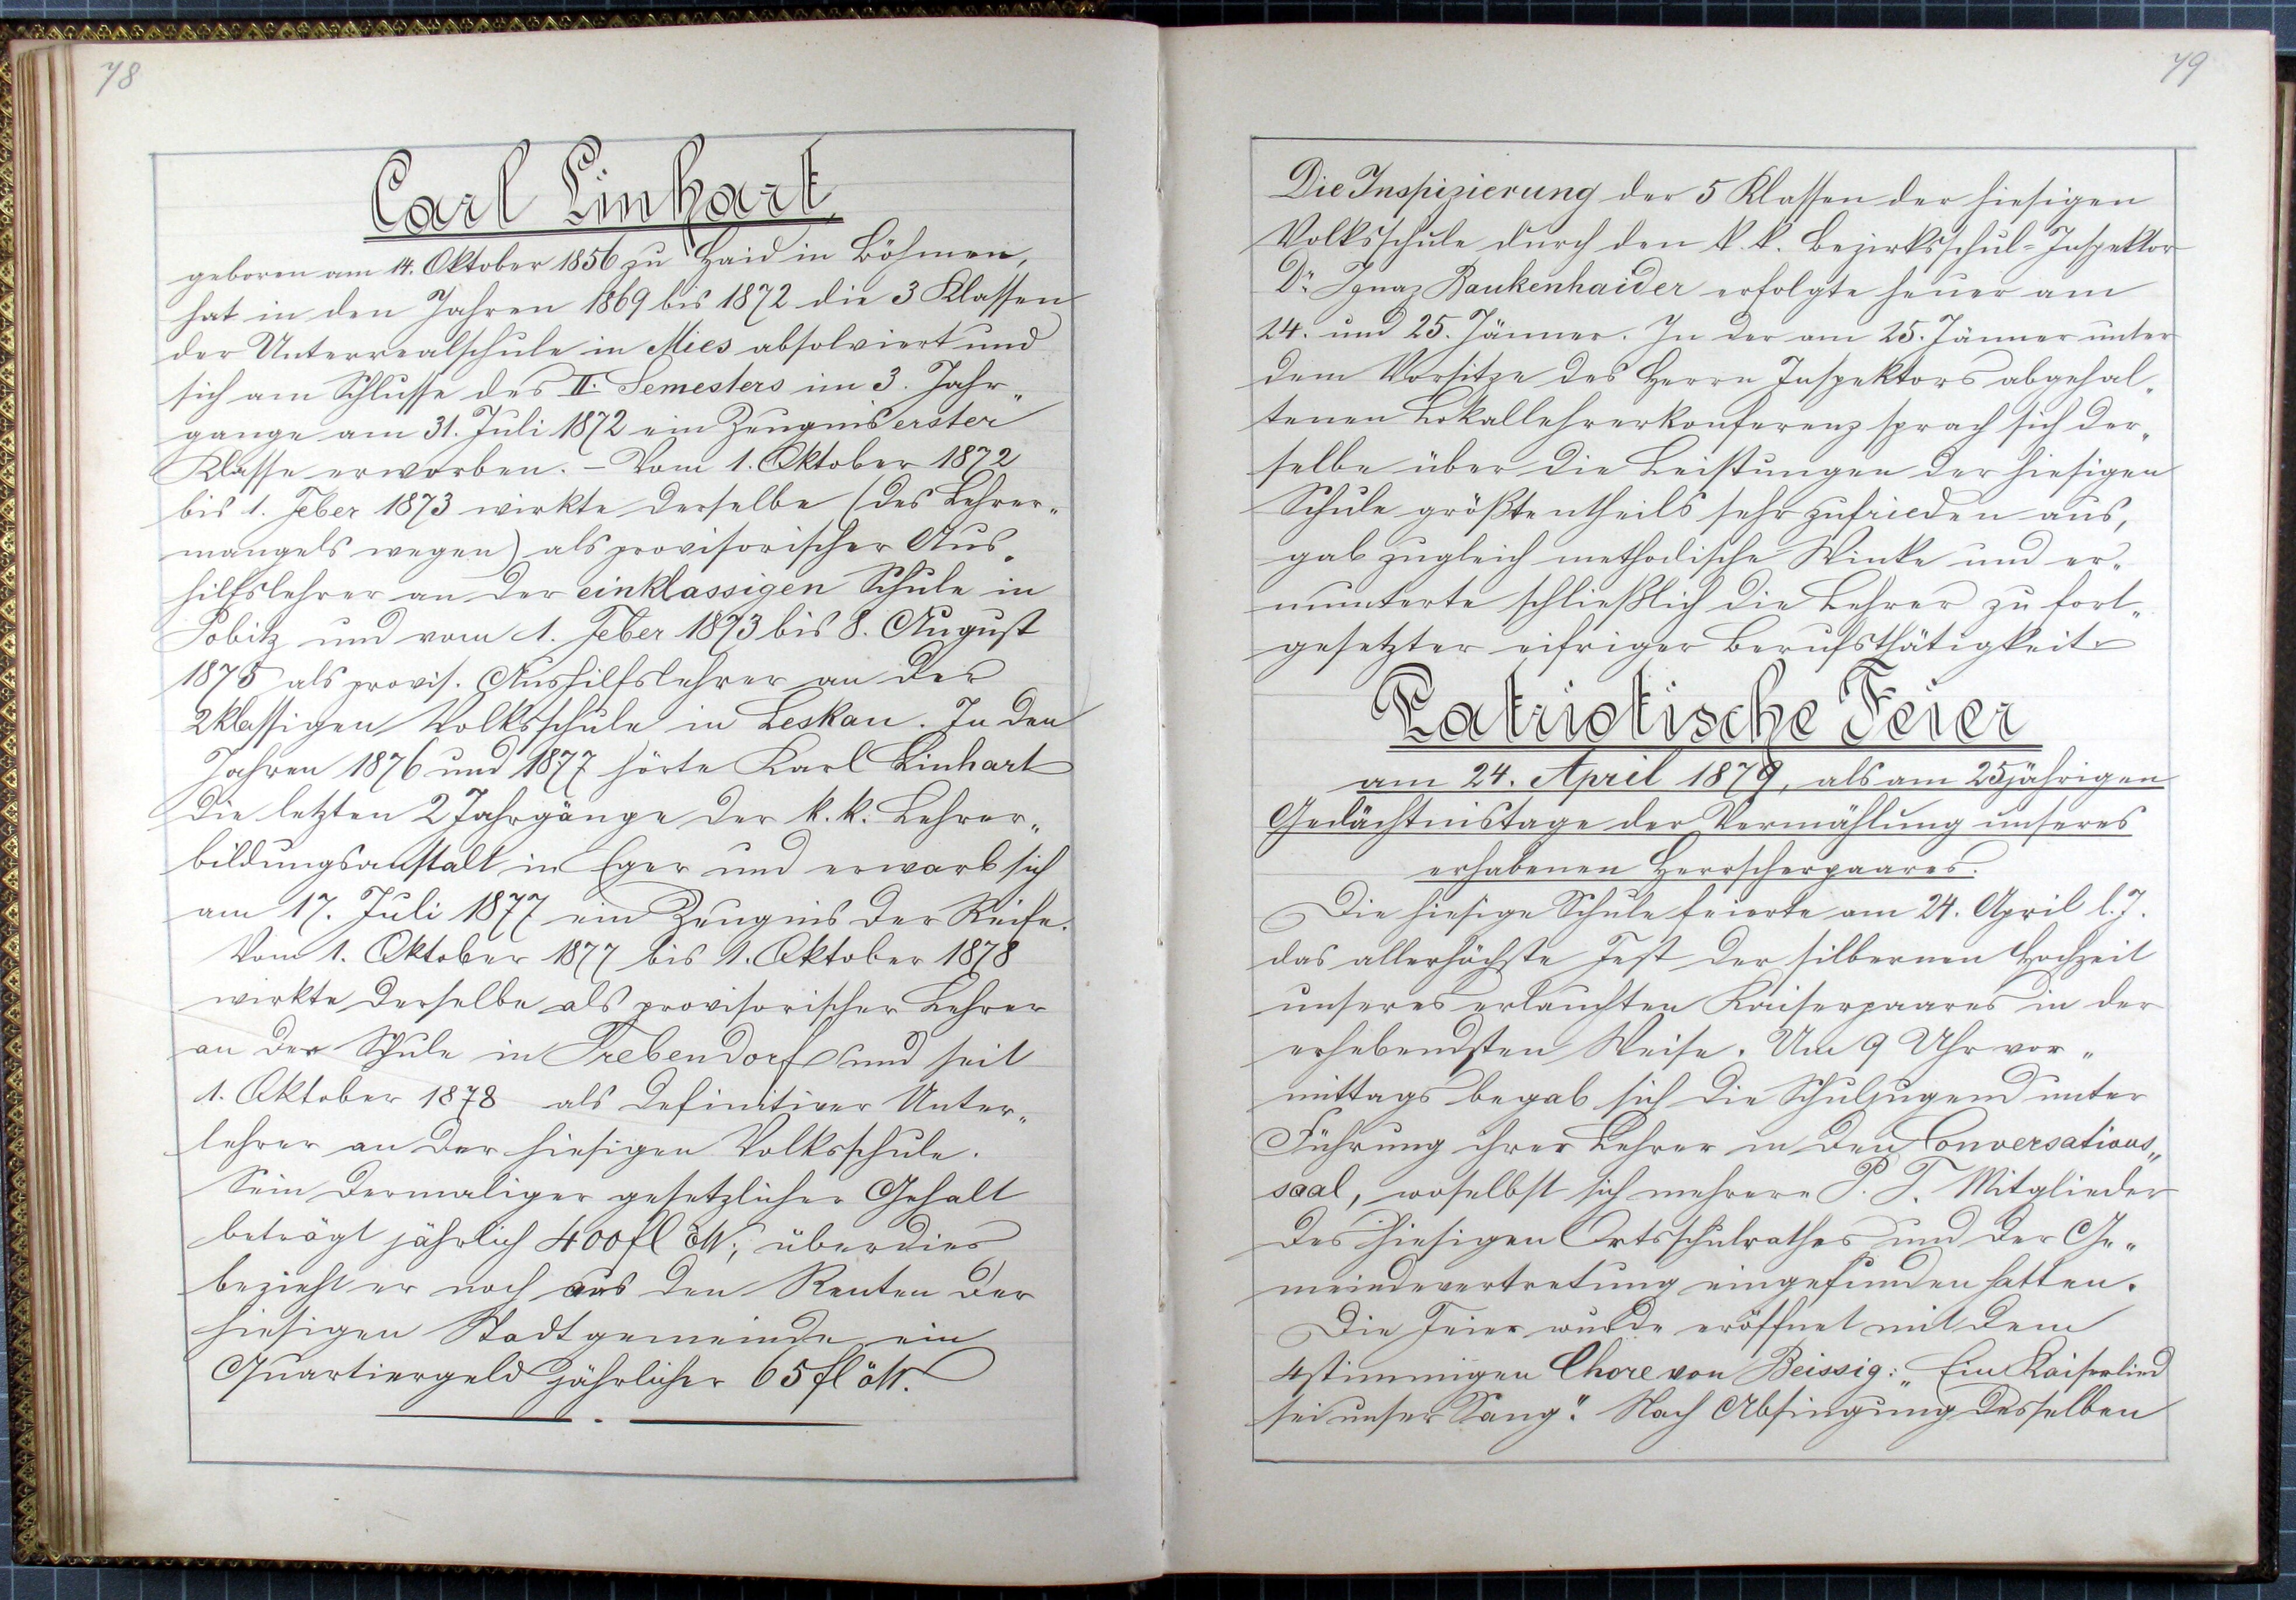 78
Carl Linhart,
geboren am 14. Oktober 1856 zu Haid in Böhmen,
hat in den Jahren 1869 bis 1872 die 3 Klassen
der Unterrealschule in Mies absolviert und
sich am Schlusse des II. Semesters im 3. Jahr„
gange am 31. Juli 1872 ein Zeugnis erster
Klasse erworben. – Vom 1. Oktober 1872
bis 1. Feber 1873 wirkte derselbe (des Lehrer„
mangels wegen) als provisorischer Aus„
hilfslehrer an der einklassigen Schule in
Pobitz und vom 1. Feber 1873 bis 8. August
1875 als provis. Aushilfslehrer an der
2klassigen Volksschule in Leskau. In den
Jahren 1876 und 1877 hörte Karl Linhart
die letzten 2 Jahrgänge der k. k. Lehrer„
bildungsanstalt in Eger und erwarb sich
am 17. Juli 1877 ein Zeugnis der Reife.
Vom 1. Oktober 1877 bis 1. Oktober 1878
wirkte derselbe als provisorischer Lehrer
an der Schule in Trebendorf und seit
1. Oktober 1878 als definitiver Unter„
lehrer an der hiesigen Volksschule.
Sein dermaliger gesetzlicher Gehalt
beträgt jährlich 400 fl öW.; überdies
bezieht er noch aus den Renten der
hiesigen Stadtgemeinde ein
Quartiergeld jährlicher 65 fl öW.
79
Die Inspizierung der 5 Klassen der hiesigen
Volksschule durch den k. k. Bezirksschul=Inspektor
Dr. Ignaz Baukenhaider erfolgte heuer am
24. und 25. Jänner. In der am 25. Jänner unter
dem Vorsitze des Herrn Inspektors abgehal„
tenen Lokallehrerkonferenz sprach sich der„
selbe über die Leistungen der hiesigen
Schule größtentheils sehr zufrieden aus,
gab zugleich methodische Winke und er„
munterte schließlich die Lehrer zu fort„
gesetzter eifriger Berufsthätigkeit.
Patriotische Feier
am 24. April 1879, als am 25jährigen
Gedächtnistage der Vermählung unseres
erhabenen Herrscherpaares.
Die hiesige Schule feierte am 24. April l. J.
das allerhöchste Fest der silbernen Hochzeit
unseres erlauchten Kaiserpaares in der
erhebendsten Weise. Um 9 Uhr vor„
mittags begab sich die Schuljugend unter
Führung ihrer Lehrer in den Conversations„
saal, woselbst sich mehrere P. T. Mitglieder
des hiesigen Ortsschulrathes und der Ge„
meindevertretung eingefunden hatten.
Die Feier wurde eröffnet mit dem
4stimmigen Chore von Beissig: „Ein Kaiserlied
sei unser Sang“. Nach Absingung desselben